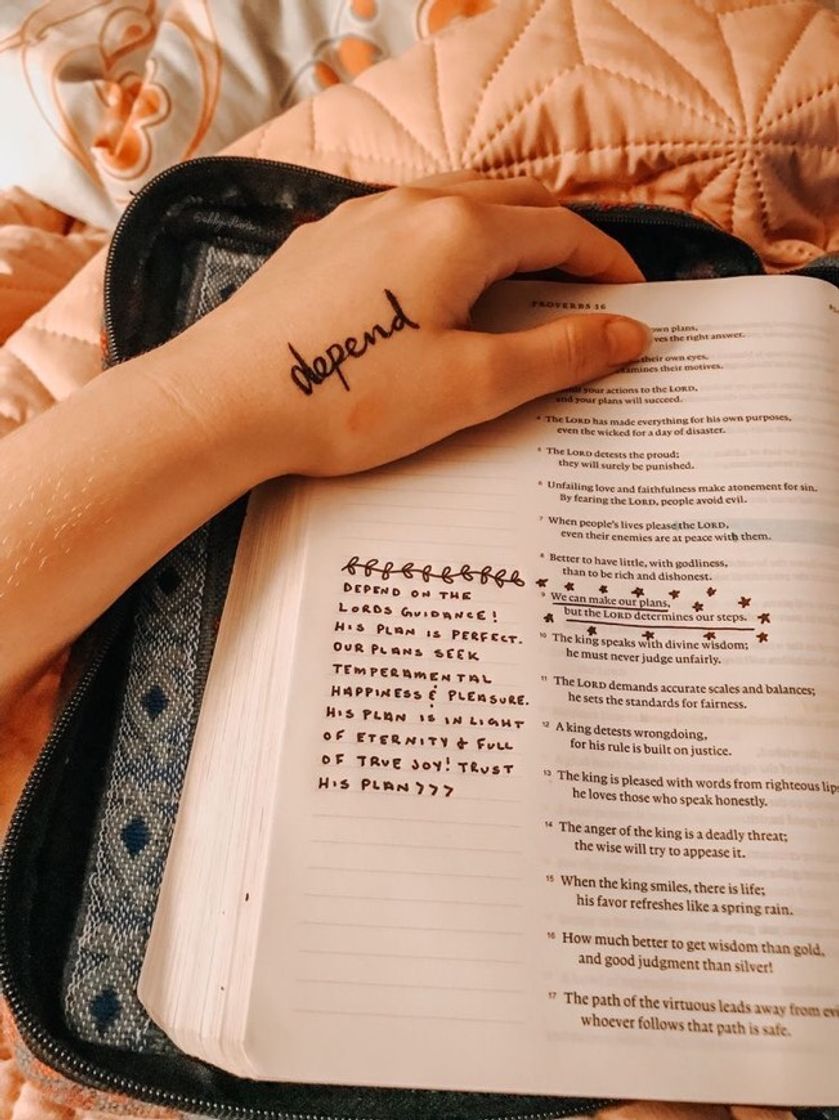 depend
PROVERBS 16
own plans,
ves the right answer.
their own eyes,
amines their motives.
your actions to the LORD,
and your plans will succeed.
4 The LORD has made everything for his own purposes,
even the wicked for a day of disaster.
5 The LORD detests the proud;
they will surely be punished.
6 Unfailing love and faithfulness make atonement for sin.
By fearing the LORD, people avoid evil.
7 When people's lives please the LORD,
even their enemies are at peace with them.
8 Better to have little, with godliness,
than to be rich and dishonest.
9 We can make our plans,
but the LORD determines our steps.
10 The king speaks with divine wisdom;
he must never judge unfairly.
11 The LORD demands accurate scales and balances;
he sets the standards for fairness.
12 A king detests wrongdoing,
for his rule is built on justice.
13 The king is pleased with words from righteous lips
he loves those who speak honestly.
14 The anger of the king is a deadly threat;
the wise will try to appease it.
15 When the king smiles, there is life;
his favor refreshes like a spring rain.
16 How much better to get wisdom than gold,
and good judgment than silver!
17 The path of the virtuous leads away from evi
whoever follows that path is safe.
DEPEND ON THE
LORDS GUIDANCE!
HIS PLAN IS PERFECT.
OUR PLANS SEEK
TEMPERAMENTAL
HAPPINESS & PLEASURE.
HIS PLAN IS IN LIGHT
OF ETERNITY & FULL
OF TRUE JOY! TRUST
HIS PLAN >>>